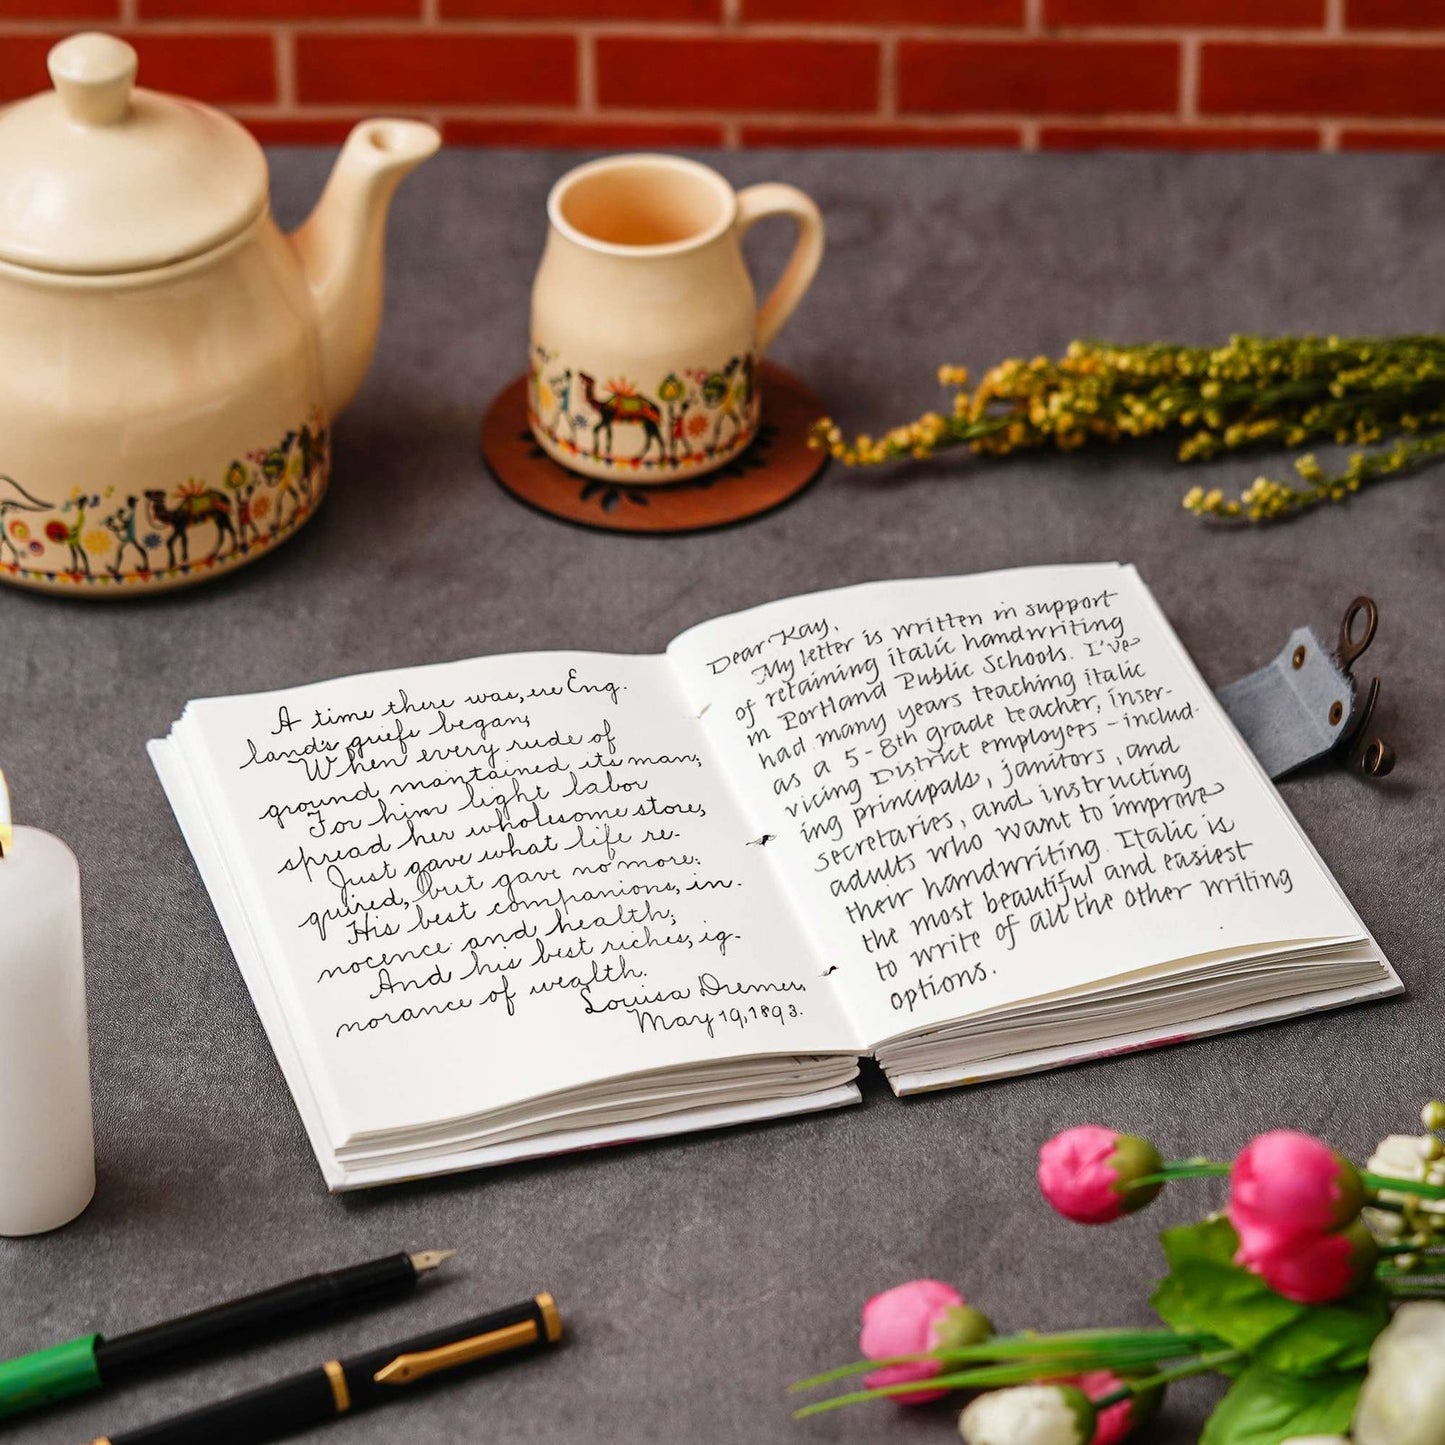 A time there was, ere Eng.
land's griefs began,
When every rude of
ground maintained its man;
For him light labor
spread her wholesome store,
Just gave what life re-
quired, but gave no more:
His best companions, in.
nocence and health;
And his best riches, ig-
norance of wealth.
Louisa Dremer,
May 19, 1893.
Dear Kay,
My letter is written in support
of retaining italic handwriting
in Portland Public Schools. I've
had many years teaching italic
as a 5-8th grade teacher, inser-
vicing District employees - includ-
ing principals, janitors, and
secretaries, and instructing
adults who want to improve
their handwriting. Italic is
the most beautiful and easiest
to write of all the other writing
options.